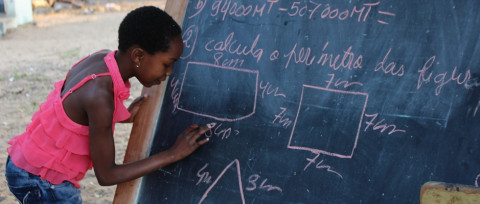 94000MT - 507000MT =
2) Calcula o perímetro das figur
8cm
4cm
8cm
7cm
7cm
7cm
7cm
4cm
3cm